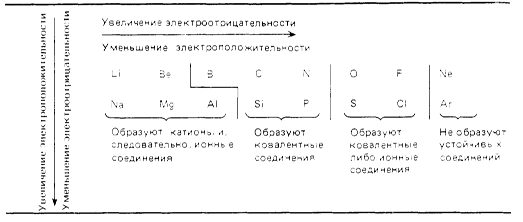 Увеличение электроотрицательности
Уменьшение электроположительности
Увеличение электроположительности
Уменьшение электроотрицательности
Li Be B C N O F Ne
Na Mg Al Si P S Cl Ar
Образуют катионы и, следовательно, ионные соединения
Образуют ковалентные соединения
Образуют ковалентные либо ионные соединения
Не образуют устойчивых соединений